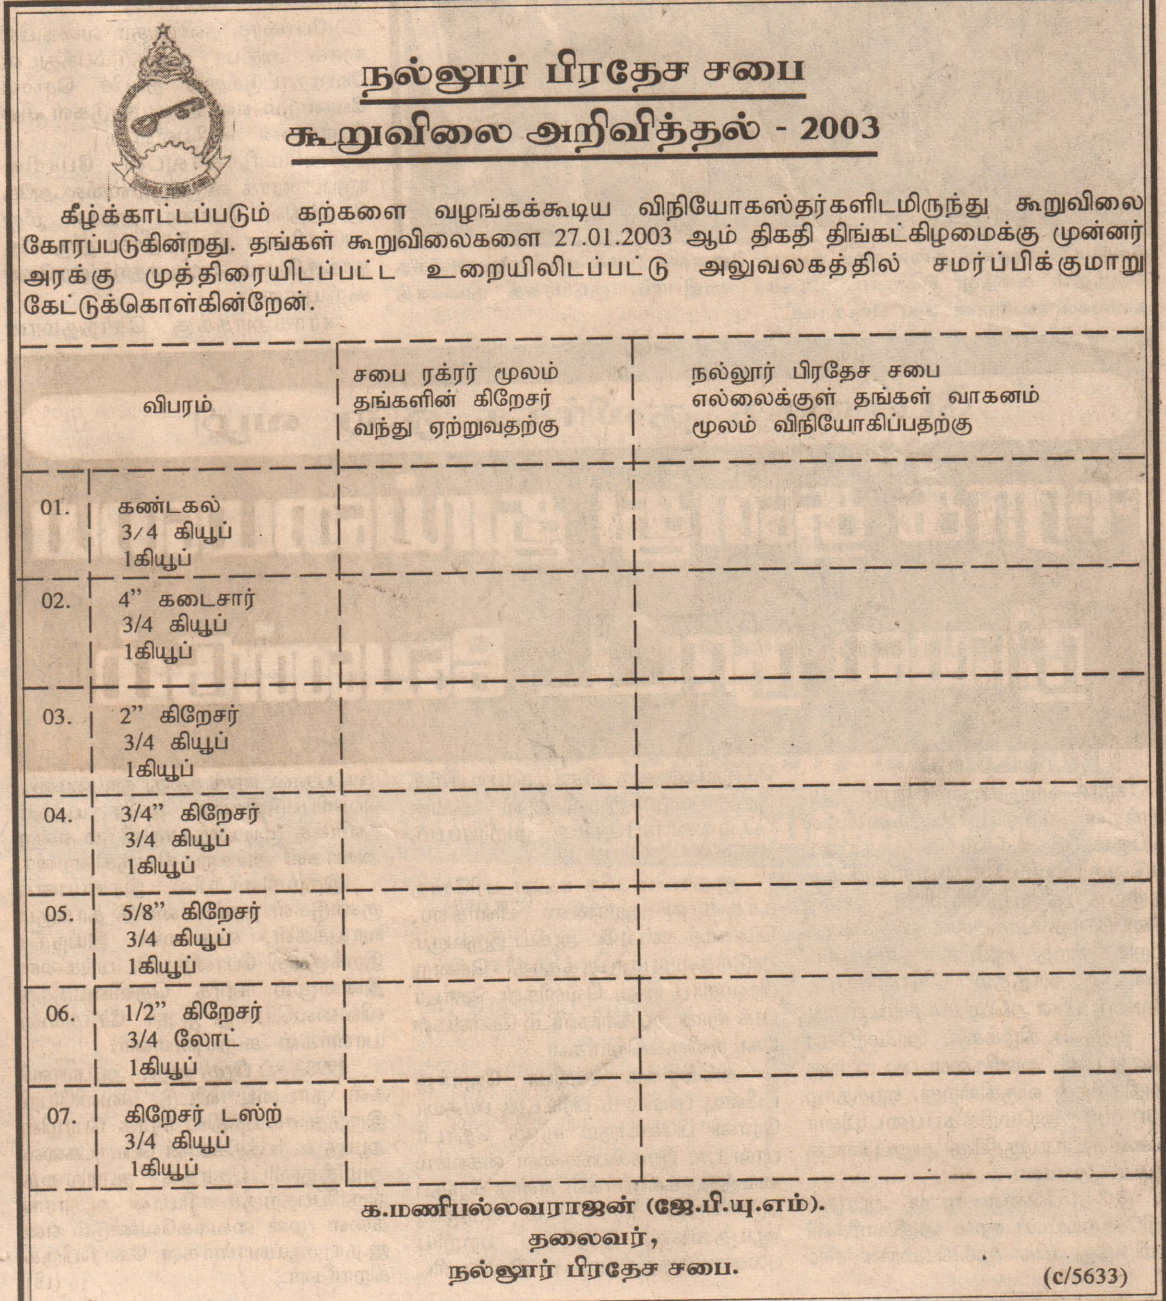 நல்லூர் பிரதேச சபை
கூறுவிலை அறிவித்தல் - 2003
கீழ்க்காட்டப்படும் கற்களை வழங்கக்கூடிய விநியோகஸ்தர்களிடமிருந்து கூறுவிலை
கோரப்படுகின்றது. தங்கள் கூறுவிலைகளை 27.01.2003 ஆம் திகதி திங்கட்கிழமைக்கு முன்னர்
அரக்கு முத்திரையிடப்பட்ட உறையிலிடப்பட்டு அலுவலகத்தில் சமர்ப்பிக்குமாறு
கேட்டுக்கொள்கின்றேன்.
விபரம்
சபை ரக்ரர் மூலம்
தங்களின் கிறேசர்
வந்து ஏற்றுவதற்கு
நல்லூர் பிரதேச சபை
எல்லைக்குள் தங்கள் வாகனம்
மூலம் விநியோகிப்பதற்கு
01. கண்டகல்
3/4 கியூப்
1கியூப்
02. 4” கடைசார்
3/4 கியூப்
1கியூப்
03. 2” கிறேசர்
3/4 கியூப்
1கியூப்
04. 3/4” கிறேசர்
3/4 கியூப்
1கியூப்
05. 5/8” கிறேசர்
3/4 கியூப்
1கியூப்
06. 1/2” கிறேசர்
3/4 லோட்
1கியூப்
07. கிறேசர் டஸ்ற்
3/4 கியூப்
1கியூப்
க.மணிபல்லவராஜன் (ஜே.பி.யு.எம்).
தலைவர்,
நல்லூர் பிரதேச சபை.
(c/5633)